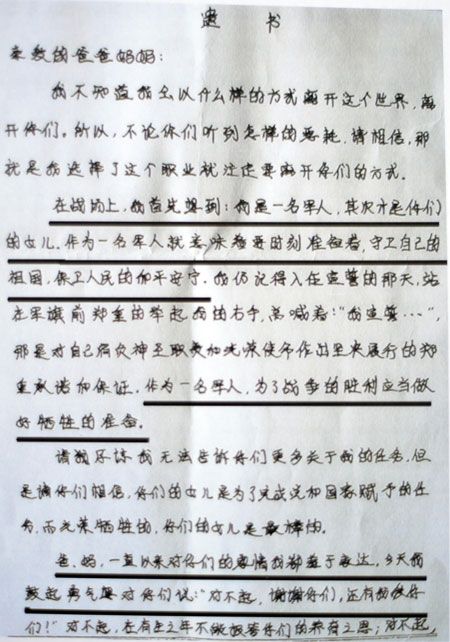 遗 书
亲敬的爸爸妈妈：
我不知道我会以什么样的方式离开这个世界，离
开你们。所以，不论你们听到怎样的噩耗，请相信，那
就是我选择了这个职业就注定要离开你们的方式。
在战场上，我首先想到：我是一名军人，其次才是你们
的女儿。作为一名军人就意味着要时刻准备着，守卫自己的
祖国，保卫人民的和平安宁。我仍记得入伍宣誓的那天，站
在军旗前郑重的举起我的右手，高喊着："我宣誓……"，
那是对自己肩负神圣职责和光荣使命作出坚决履行的郑
重承诺和保证。作为一名军人，为了战争的胜利应当做
好牺牲的准备。
请我原谅我无法告诉你们更多关于我的任务，但
是请你们相信，你们的女儿是为了完成党和国家赋予的任
务，而光荣牺牲的，你们的女儿是最棒的。
爸、妈，一直以来对你们的感情我都羞于表达，今天我
鼓起勇气要对你们说："对不起，谢谢你们，还有我爱你
们！"对不起，在有生之年不能报答你们的养育之恩；对不起，